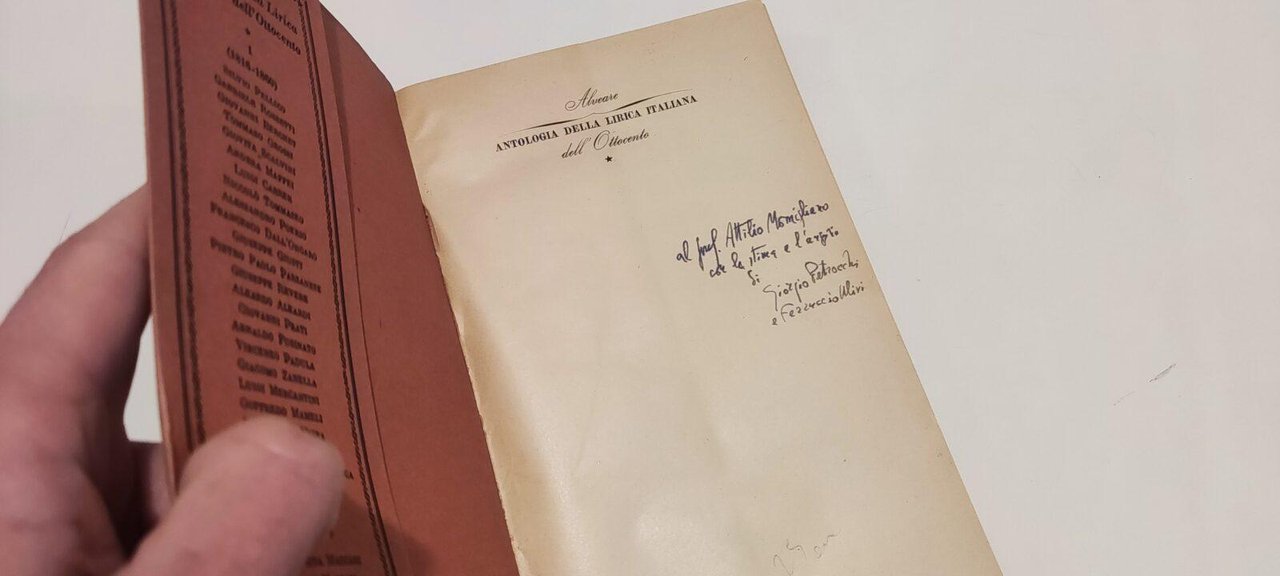 dell'Ottocento
*
1
(1816-1860)
SILVIO PELLICO
GABRIELE ROSSETTI
GIOVANNI BERCHET
TOMMASO GROSSI
GIOVITA SCALVINI
ANDREA MAFFEI
LUIGI CARRER
NICCOLÒ TOMMASEO
ALESSANDRO POERIO
FRANCESCO DALL'ONGARO
GIUSEPPE GIUSTI
PIETRO PAOLO PARZANESE
GIUSEPPE REVERE
ALEARDO ALEARDI
GIOVANNI PRATI
ARNALDO FUSINATO
VINCENZO PADULA
GIACOMO ZANELLA
LUIGI MERCANTINI
GOFFREDO MAMELI
Alveare
ANTOLOGIA DELLA LIRICA ITALIANA
dell'Ottocento
*
al prof. Attilio Momigliano
con la stima e l'augurio
di
Giorgio Petrocchi
e Ferruccio Ulivi